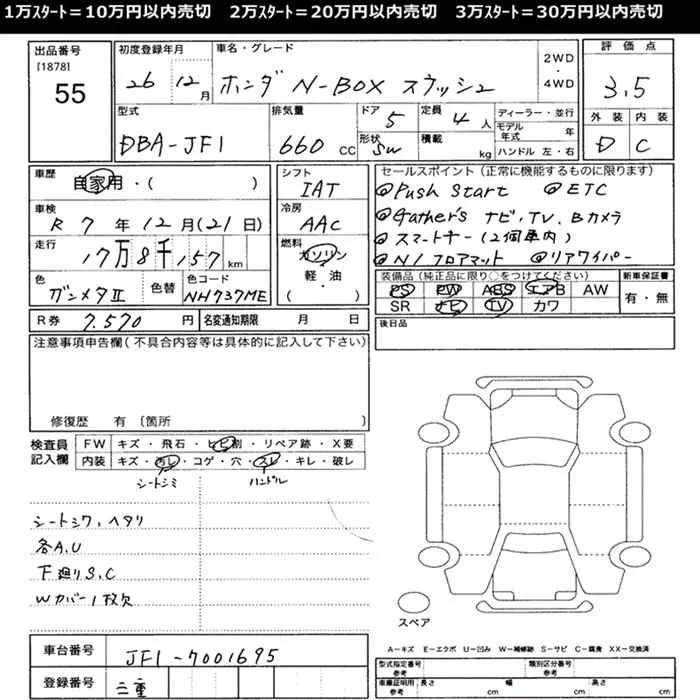 1万ｽﾀｰﾄ＝10万円以内売切　2万ｽﾀｰﾄ＝20万円以内売切　3万ｽﾀｰﾄ＝30万円以内売切
出品番号
[1878]
55
初度登録年月
26 12月
車名・グレード
ホンダ N-BOX スラッシュ
2WD
・
4WD
評価点
3.5
外装 内装
D C
型式
DBA-JF1
排気量
660 cc
ドア
5
形状
SW
定員
4人
積載
kg
ディーラー・並行
モデル年式 年
ハンドル 左・右
車歴
自家用・( )
車検
R 7年12月(21日)
走行
17万8千157km
色
ガンメタII
色替
色コード
NH737ME
シフト
IAT
冷房
AAC
燃料
ガソリン
軽・油
( ・ )
セールスポイント（正常に機能するものに限ります）
◎Push Start ◎ETC
◎Gather's ナビ,TV,Bカメラ
◎スマートキー(2個車内)
◎N/ フロアマット ◎リアワイパー
装備品（純正品に限り○をつけてください）
PS PW ABS エアB AW
SR ナビ TV カワ
新車保証書
有・無
後日品
R券 7,570円
名変通知期限 月 日
注意事項申告欄(不具合内容等は具体的に記入して下さい)
修復歴 有〔箇所 〕
検査員
記入欄
FW キズ・飛石・ヒビ割・リペア跡・X要
内装 キズ・汚レ・コゲ・穴・スレ・キレ・破レ
シートシミ ハンドル
シートシワ,ヘタリ
各A,U
下廻りS,C
Wカバー1枚欠
スペア
A－キズ E－エクボ U－凹み W－補修跡 S－サビ C－腐食 XX－交換済
車台番号
JF1-7001695
登録番号
三重
型式指定番号
参考
類別区分番号
参考
車庫証明用
参考
長さ cm 幅 cm 高さ cm